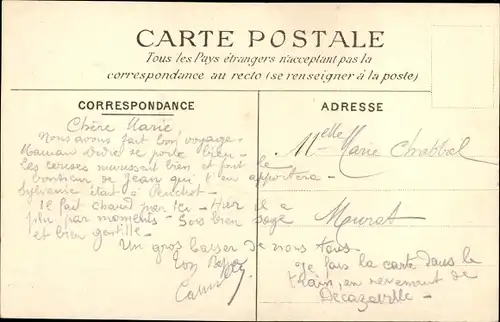 CARTE POSTALE
Tous les Pays étrangers n'acceptant pas la
correspondance au recto (se renseigner à la poste)
CORRESPONDANCE
Chère Marie,
Nous avons fait bon voyage.
Maman Dédé se porte bien -
Les cerises murissent bien et font le
bonheur de Jean qui t'en apportera -
Sylvanie était à Penchot -
Il fait chaud par ici - Hier il a
plu par moments - Sois bien sage
et bien gentille -
Un gros baiser de nous tous
Ton
ADRESSE
Melle Marie Chabbal
Murat
Je fais la carte dans le
train, en revenant de
Decazeville -